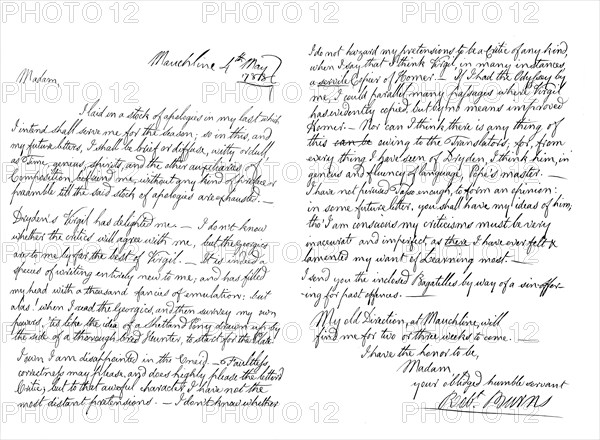 Mauchline 4th May
1788
Madam,
I laid in a stock of apologies in my last which
I intend shall serve me for the season; so in this, and
my future letters, I shall be brief or diffuse, witty or dull,
as Time, genius, spirits, and the other auxiliaries of
Composition, befriend me, without any kind of preface or
preamble till the said stock of apologies are exhausted. —
Dryden's Virgil has delighted me. — I don't know
whether the critics will agree with me, but the Georgics
are to me by far the best of Virgil. — It is indeed a
species of writing entirely new to me; and has filled
my head with a thousand fancies of emulation: but
alas! when I read the Georgics, and then survey my own
powers, 'tis like the idea of a Shetland Pony drawn up by
the side of a thorough bred Hunter, to start for the Plate.
I own I am disappointed in the Eneid. — Faultless
correctness may please, and does highly please the lettered
Critic; but to that aweful character I have not the
most distant pretensions. — I don't know whether
I do not hazard my pretensions to be a Critic of any kind,
when I say that I think Virgil, in many instances,
a servile Copier of Homer. — If I had the Odyssey by
me, I could parallel many passages where Virgil
has evidently copied but by no means improved
Homer. — Nor can I think there is any thing of
this owing to the Translators; for, from
every thing I have seen of Dryden, I think him, in
genius and fluency of language, Pope's master. —
I have not perused Tasso enough, to form an opinion:
in some future letter, you shall have my ideas of him;
tho' I am conscious my criticisms must be very
inaccurate and imperfect, as there I have ever felt &
lamented my want of Learning most. —
I send you the inclosed Bagatelles by way of a sin-offer-
-ing for past offences. —
My old Direction, at Mauchline, will
find me for two or three weeks to come.
I have the honor to be,
Madam,
your obliged humble servant
Robt. Burns
PHOTO 12